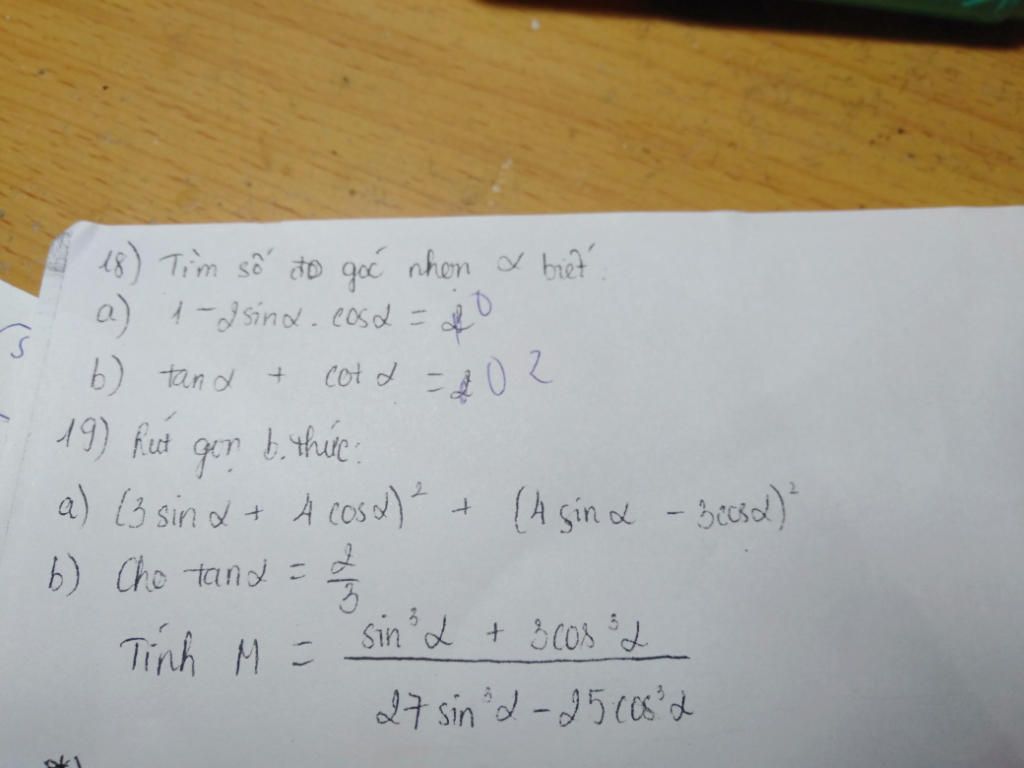 18) Tìm số đo góc nhọn α biết:
a) 1 - 2sinα . cosα = 0
b) tanα + cot α = 2
19) Rút gọn b.thức:
a) (3 sinα + 4 cosα)² + (4 sinα - 3cosα)²
b) Cho tanα = 2/3
Tính M = (sin³α + 3cos³α) / (27 sin³α - 25cos³α)